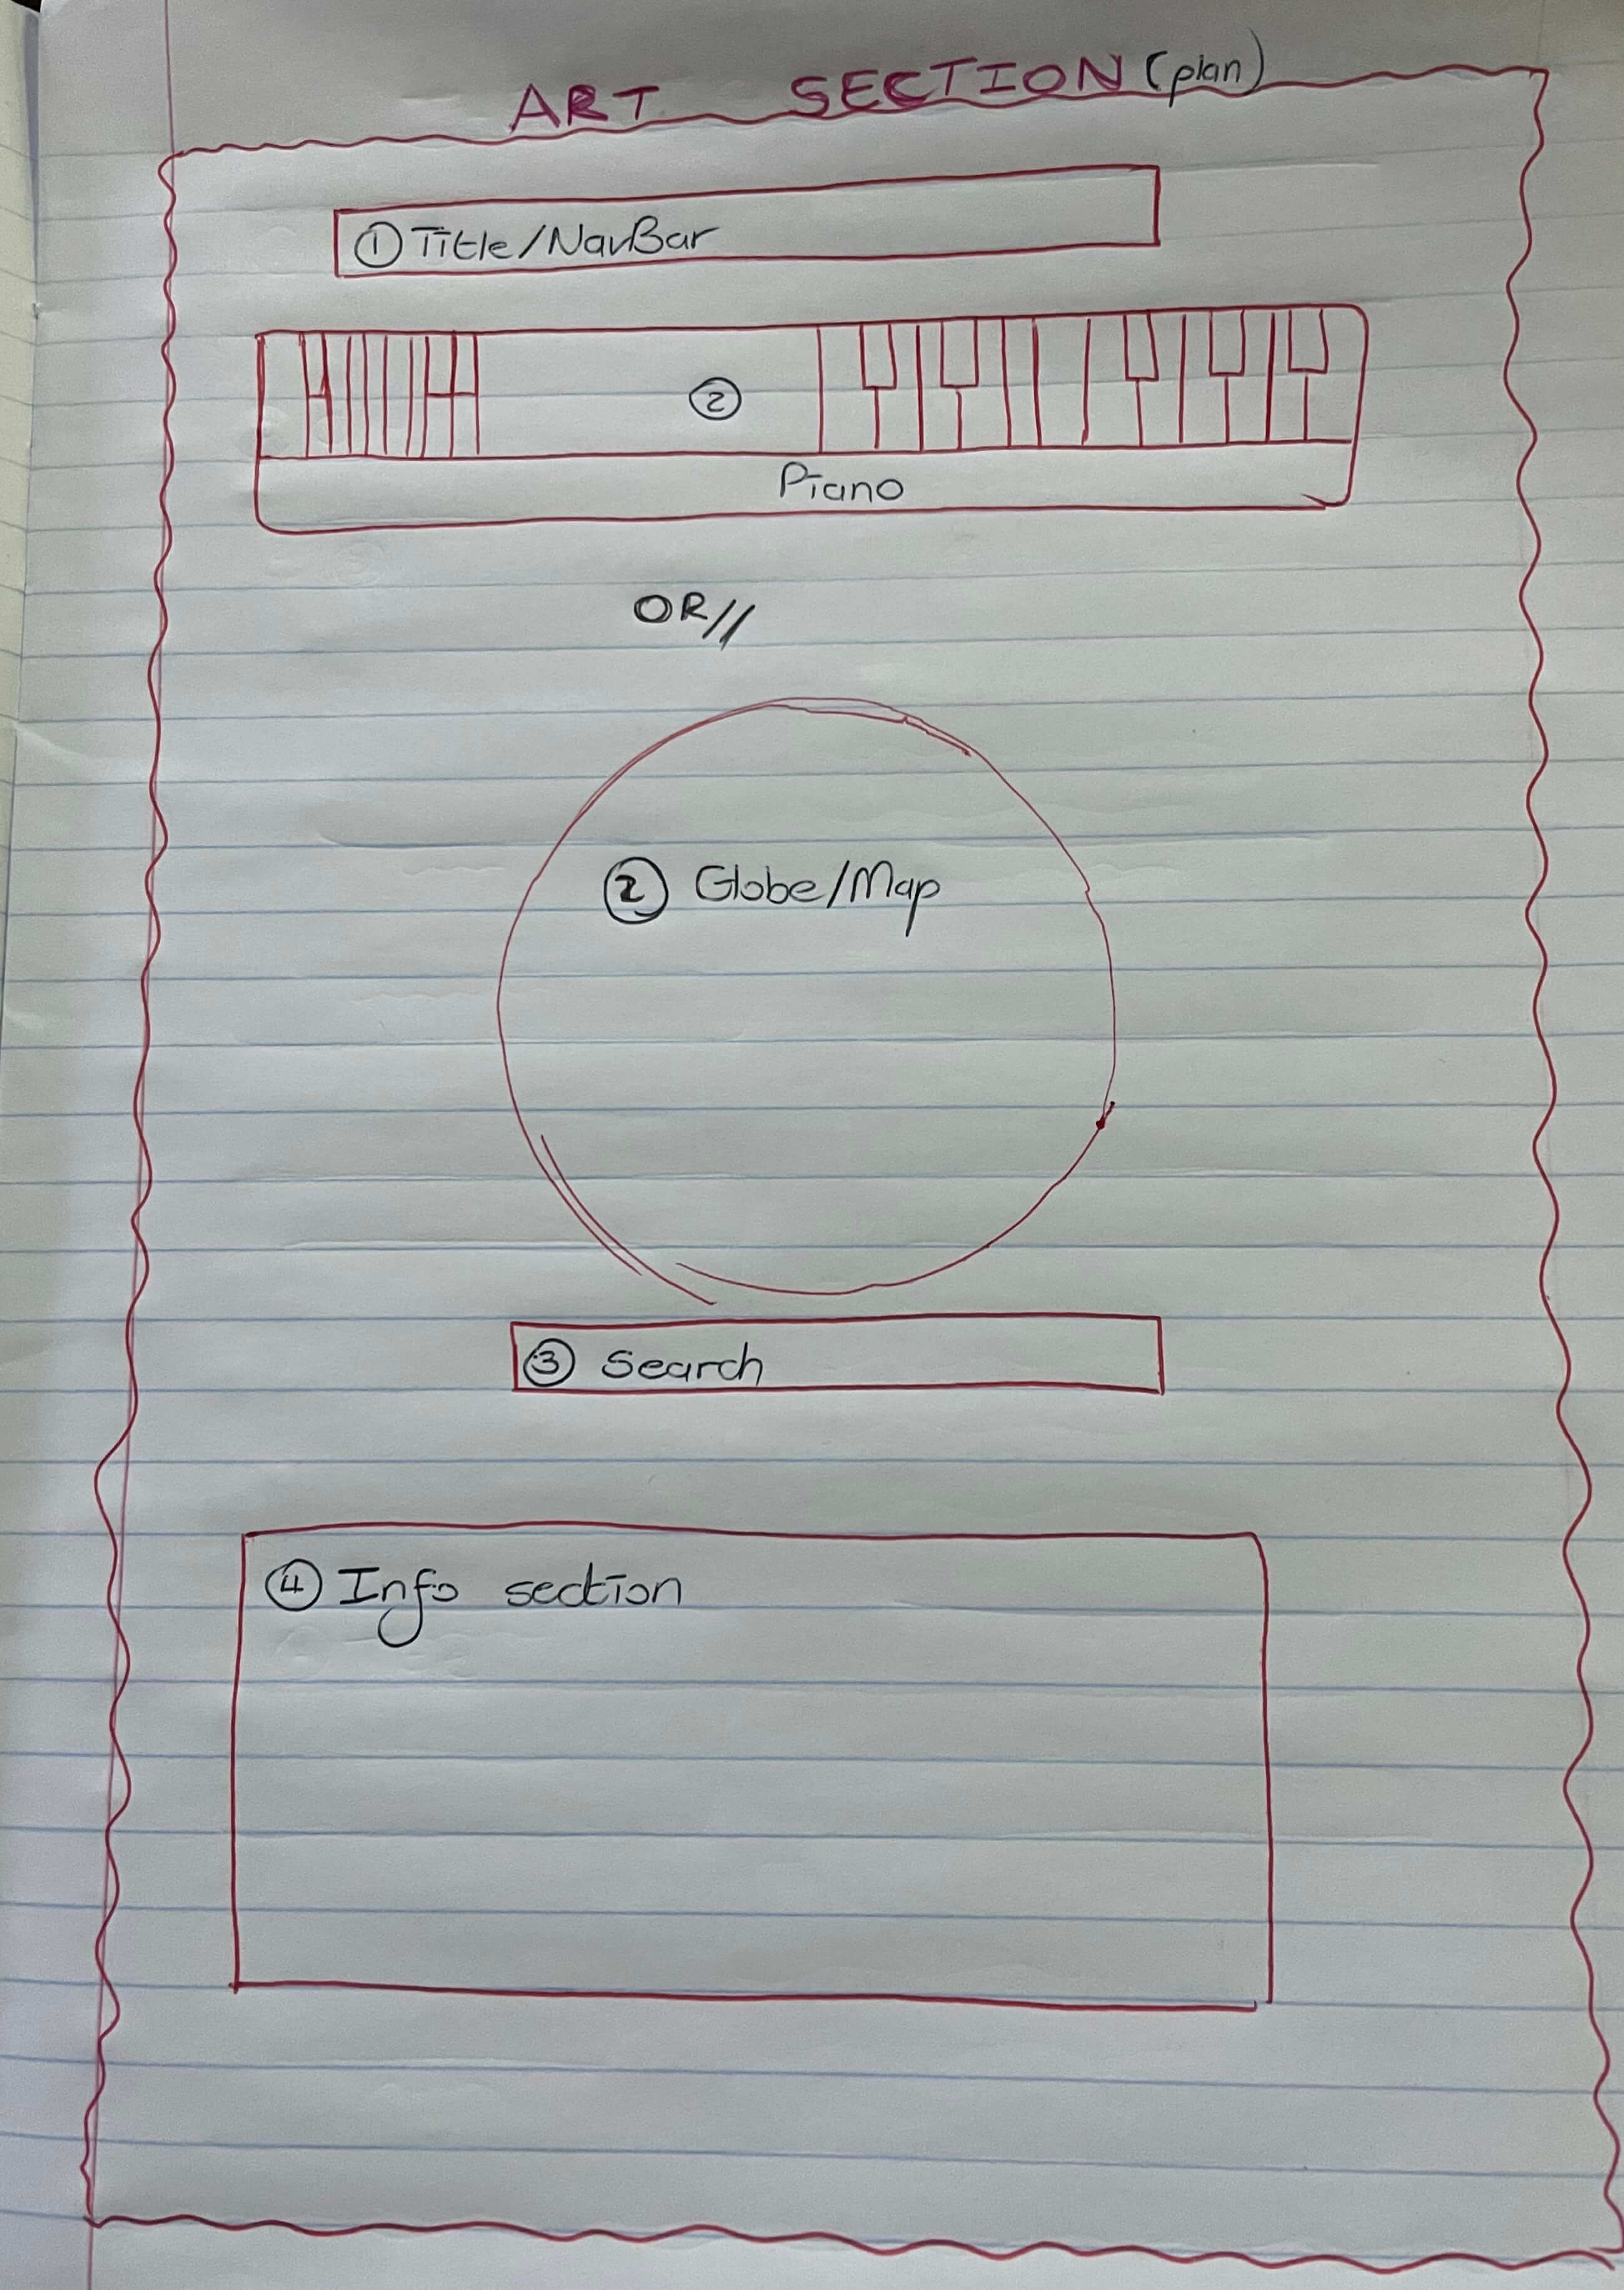 ART SECTION (plan)
① Title/NavBar
②
Piano
OR//
② Globe/Map
③ Search
④ Info section